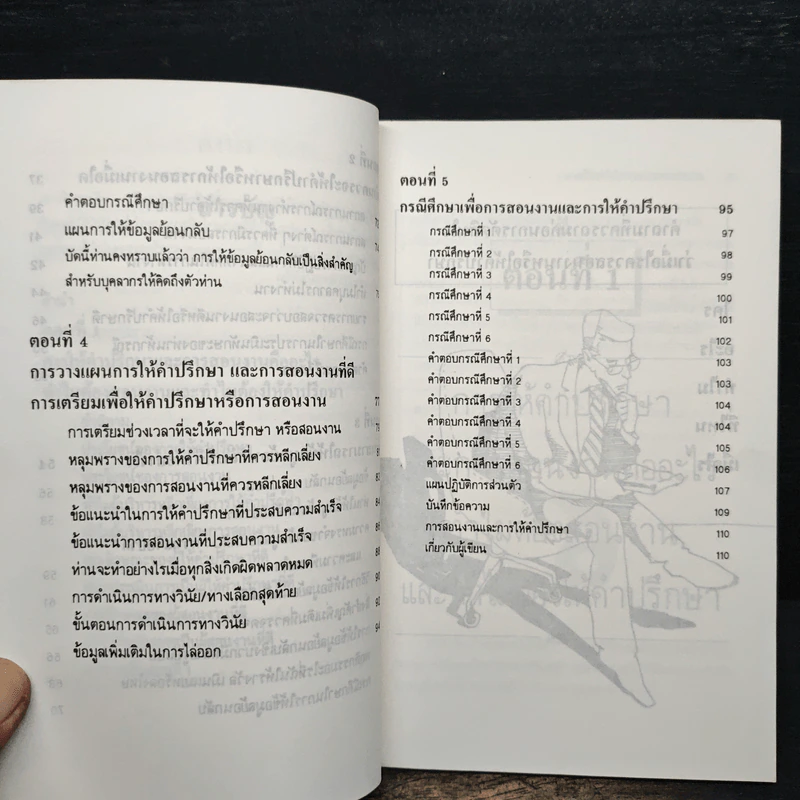 คำตอบกรณีศึกษา
แผนการให้ข้อมูลย้อนกลับ
บัดนี้ท่านคงทราบแล้วว่า การให้ข้อมูลย้อนกลับเป็นสิ่งสำคัญ
สำหรับบุคลากรให้คิดถึงตัวท่าน
ตอนที่ 4
การวางแผนการให้คำปรึกษา และการสอนงานที่ดี
การเตรียมเพื่อให้คำปรึกษาหรือการสอนงาน 77
การเตรียมช่วงเวลาที่จะให้คำปรึกษา หรือสอนงาน
หลุมพรางของการให้คำปรึกษาที่ควรหลีกเลี่ยง
หลุมพรางของการสอนงานที่ควรหลีกเลี่ยง
ข้อแนะนำในการให้คำปรึกษาที่ประสบความสำเร็จ
ข้อแนะนำการสอนงานที่ประสบความสำเร็จ
ท่านจะทำอย่างไรเมื่อทุกสิ่งเกิดผิดพลาดหมด
การดำเนินการทางวินัย/ทางเลือกสุดท้าย
ขั้นตอนการดำเนินการทางวินัย
ข้อมูลเพิ่มเติมในการไล่ออก
ตอนที่ 5
กรณีศึกษาเพื่อการสอนงานและการให้คำปรึกษา 95
กรณีศึกษาที่ 1 97
กรณีศึกษาที่ 2 98
กรณีศึกษาที่ 3 99
กรณีศึกษาที่ 4 100
กรณีศึกษาที่ 5 101
กรณีศึกษาที่ 6 102
คำตอบกรณีศึกษาที่ 1 103
คำตอบกรณีศึกษาที่ 2 103
คำตอบกรณีศึกษาที่ 3 104
คำตอบกรณีศึกษาที่ 4 104
คำตอบกรณีศึกษาที่ 5 105
คำตอบกรณีศึกษาที่ 6 106
แผนปฏิบัติการส่วนตัว 107
บันทึกข้อความ 109
การสอนงานและการให้คำปรึกษา 110
เกี่ยวกับผู้เขียน 110